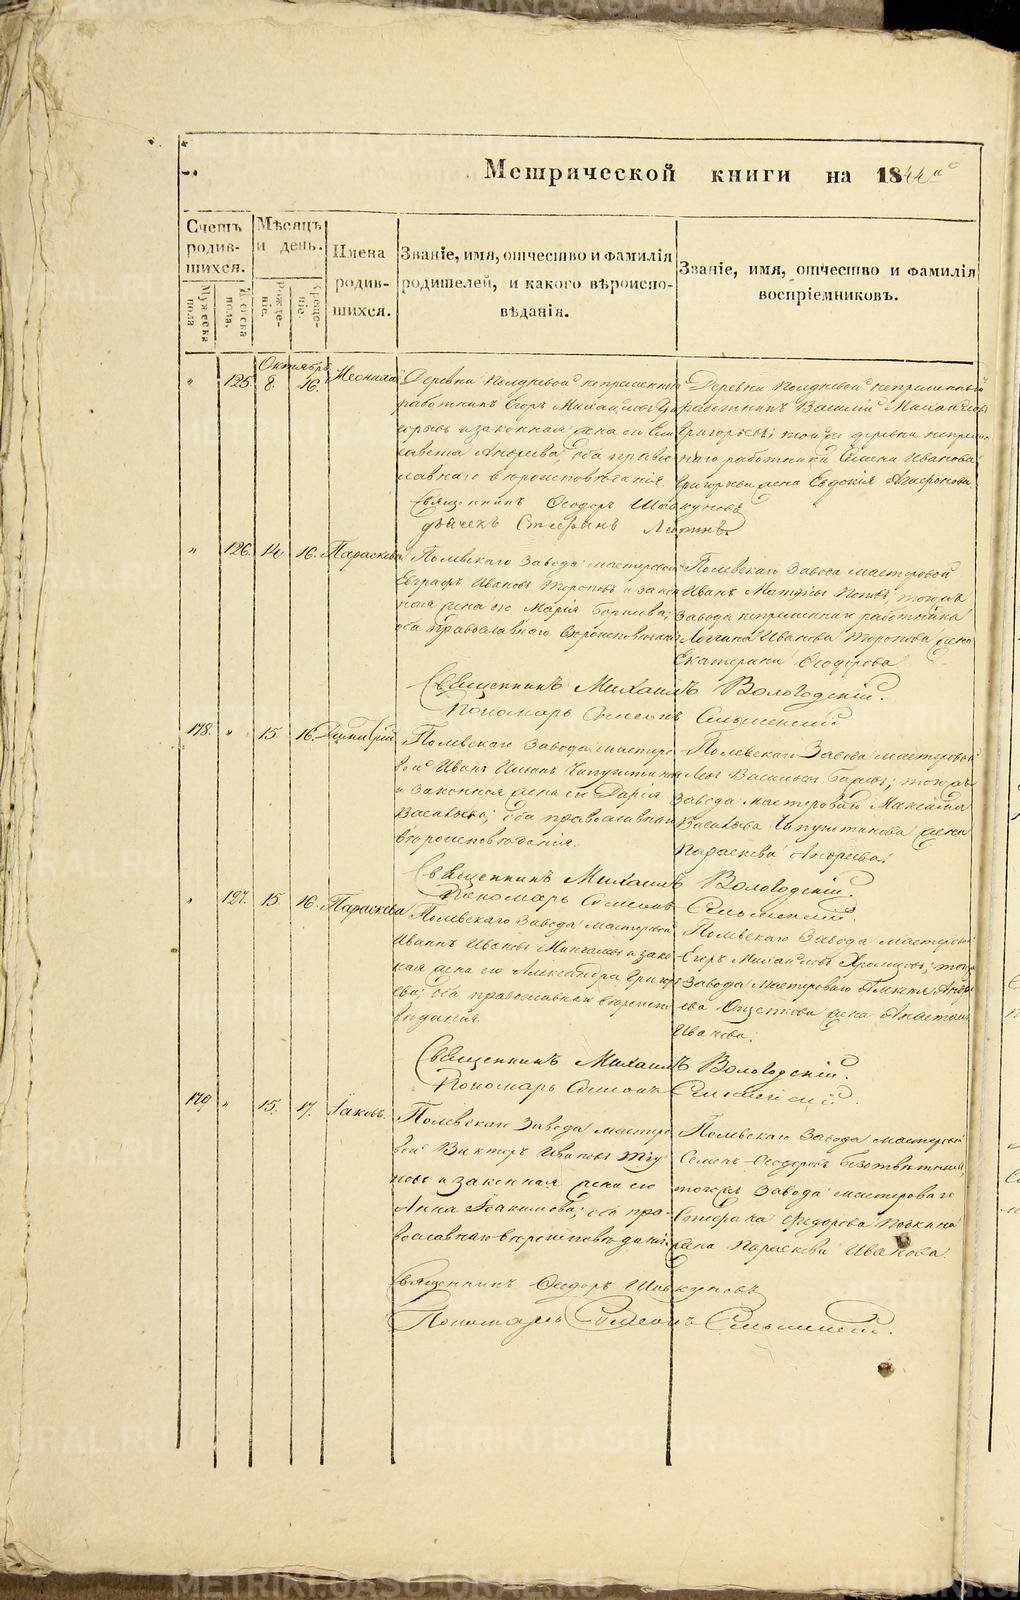 Метрической книги на 1844й
Счетъ родив-шихся.
Мѣсяцъ и день.
Имена родив-шихся.
Званіе, имя, отчество и фамилія родителей, и какого вѣроиспо-вѣданія.
Званіе, имя, отчество и фамилія воспріемниковъ.
Мужеска пола
Женска пола.
Рожде-ніе.
Креще-ніе.
Октябрь
" 125 8. 16. Неонила
Деревни Полдневой непременный
работникъ Егоръ Михайловъ Гри
горьевъ и законная жена его Ели
савета Андреева; оба право
славнаго вѣроисповѣданія.
Деревни Полдневой непременный
работникъ Василій Михайловъ
Григорьевъ; той же деревни непремен
наго работника Семена Иванова
Григорьева жена Евдокія
Священникъ Ѳеодоръ Шовкуновъ
дьячекъ Стефанъ
" 126. 14 16. Параскева
Полевскаго Завода мастеровой
Евграфъ Ивановъ Тороповъ и закон
ная жена его Марія Борисова;
оба православнаго вѣроисповѣданія
Полевскаго Завода мастеровой
Иванъ Матвѣевъ Поповъ; тогожъ
Завода непременнаго работника
Логгина Иванова Торопова жена
Екатерина Ѳеодорова.
Священникъ Михаилъ Вологодскій.
Пономарь Симеонъ
178. " 15. 16. Димитрій
Полевскаго Завода мастеро
вой Иванъ Ильинъ Чипуштановъ
и законная жена его Дарія
Васильева; оба православнаго
вѣроисповѣданія.
Полевскаго Завода мастеровой
Левъ Васильевъ; тогожъ
Завода мастероваго Максима
Васильева Чипуштанова жена
Параскева Андреева.
Священникъ Михаилъ Вологодскій.
Пономарь Симеонъ
" 127. 15 16. Параскева
Полевскаго Завода мастеровой
Иванъ Ивановъ и закон
ная жена его Александра Григорь
ева; оба православнаго вѣроиспо
вѣданія.
Полевскаго Завода мастеровой
Егоръ Михайловъ; тогожъ
Завода мастероваго Алексея Андре
ева жена Анастасія
Иванова.
Священникъ Михаилъ Вологодскій.
Пономарь Симеонъ
179 " 15. 17. Іаковъ.
Полевскаго Завода мастеро
вой Викторъ Ивановъ
и законная жена его
Анна Іоакимова; оба пра-
вославнаго вѣроисповѣданія.
Полевскаго Завода мастеровой
Семенъ Ѳеодоровъ Безотвѣтныхъ;
тогожъ Завода мастероваго
Федорова
жена Параскева Иванова.
Священникъ Ѳеодоръ Шовкуновъ
Пономарь Симеонъ
METRIKI.GASO-URAL.RU